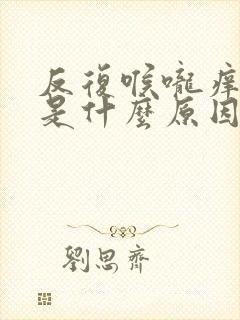 反復喉嚨癢
是什麼原因
劉思齊